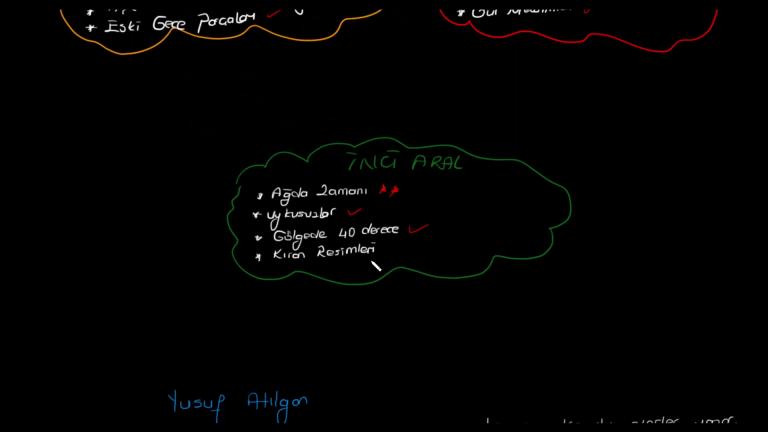 * Eski Gece Parçaları
* Gül
İNCİ ARAL
* Ağda Zamanı **
* uykusuzlar
* Gölgede 40 derece
* Kıran Resimleri
Yusuf Atılgan